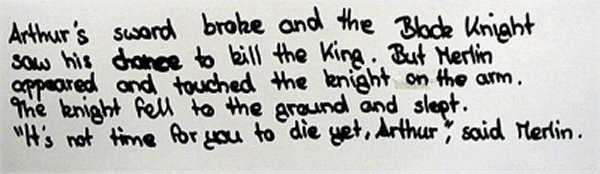 Arthur's sword broke and the Black Knight
saw his chance to kill the King. But Merlin
appeared and touched the knight on the arm.
The knight fell to the ground and slept.
"It's not time for you to die yet, Arthur", said Merlin.